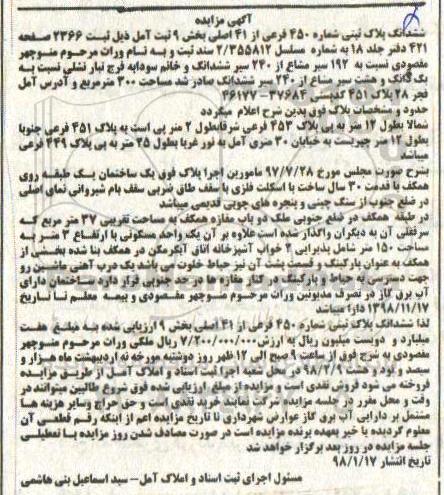 آگهی مزایده
ششدانگ پلاک ثبتی شماره ۴۵۰ فرعی از ۴۱ اصلی بخش ۹ ثبت آمل ذیل ثبت ۲۳۶۶ صفحه
۴۲۱ دفتر جلد ۱۸ به شماره مسلسل ۲/۳۵۵۸۱۲ سند ثبت و به تمام وراث مرحوم منوچهر
مقصودی نسبت به ۱۹۲ سیر مشاع از ۲۴۰ سیر ششدانگ و خانم سودابه فرج تبار نشلی نسبت به
یک دانگ و هشت سیر مشاع از ۲۴۰ سیر ششدانگ صادر شد مساحت ۳۰۰ مترمربع و آدرس آمل
فجر ۲۸ پلاک ۴۵۱ کدپستی ۳۷۶۸۴-۴۶۱۷۷
حدود و مشخصات پلاک فوق بدین شرح اعلام میگردد
شمالا بطول ۱۲ متر به پی پلاک ۴۵۳ فرعی شرقابطول ۲ متر پی است به پلاک ۴۵۱ فرعی جنوبا
بطول ۱۲ متر چپریست به خیابان ۳۰ متری آمل به نور غربا بطول ۲۵ متر به پی پلاک ۴۴۹ فرعی
میباشد
بشرح صورت مجلس مورخ ۹۷/۷/۲۸ مامورین اجرا پلاک فوق یک ساختمان یک طبقه روی
همکف با قدمت ۳۰ سال ساخت با اسکلت فلزی با سقف طاق ضربی سقف بام شیروانی نمای اصلی
در ضلع جنوب از سنگ چینی و پنجره های چوبی قدیمی میباشد
در طبقه همکف در ضلع جنوبی ملک دو باب مغازه همکف به مساحت تقریبی ۳۷ متر مربع که
سرقفلی آن به دیگران واگذار شده است علاوه بر آن یک واحد مسکونی با ارتفاع ۳ متر به
مساحت ۱۵۰ متر شامل پذیرایی ۲ خواب آشپزخانه اتاق آبگرمکن در همکف بنا شده بخشی از
همکف به عنوان پارکینگ و قسمت پشت آن نیز حیاط خلوت می باشد یک درب آهنی ماشین رو
جهت دسترسی به حیاط و پارکینگ در کنار مغازه ها در حد جنوبی قرار دارد ساختمان دارای
آب برق گاز در تصرف مدیونین وراث مرحوم منوچهر مقصودی و بیمه معلم تا تاریخ
۱۳۹۸/۱۱/۱۷ دارا میباشد
لذا ششدانگ پلاک ثبتی شماره ۴۵۰ فرعی از ۴۱ اصلی بخش ۹ ارزیابی شده به مبلغ هفت
میلیارد و دویست میلیون ریال به ارزش ۷/۲۰۰/۰۰۰/۰۰۰ ریال ملکی وراث مرحوم منوچهر
مقصودی به شرح فوق از ساعت ۹ صبح الی ۱۲ ظهر روز دوشنبه مورخه نه اردیبهشت ماه هزار و
سیصد و نود و هشت ۹۸/۲/۹ در محل شعبه اجرا ثبت اسناد و املاک آمل از طریق مزایده
فروخته می شود فروش نقدی است و مزایده از مبلغ ارزیابی شده فوق شروع طالبین میتوانند در
وقت و محل مقرر در جلسه مزایده شرکت نمایند خرید نقدی است و حق حراج وسایر هزینه ها
مشتمل بر دارایی آب برق گاز عوارض شهرداری تا تاریخ مزایده اعم از اینکه رقم قطعی آن
معلوم گردیده یا خیر بعهده برنده مزایده است در صورت مصادف شدن روز مزایده با تعطیلی
جلسه مزایده در روز بعد برگزار خواهد شد
تاریخ انتشار ۹۸/۱/۱۷
مسئول اجرای ثبت اسناد و املاک آمل – سید اسماعیل بنی هاشمی